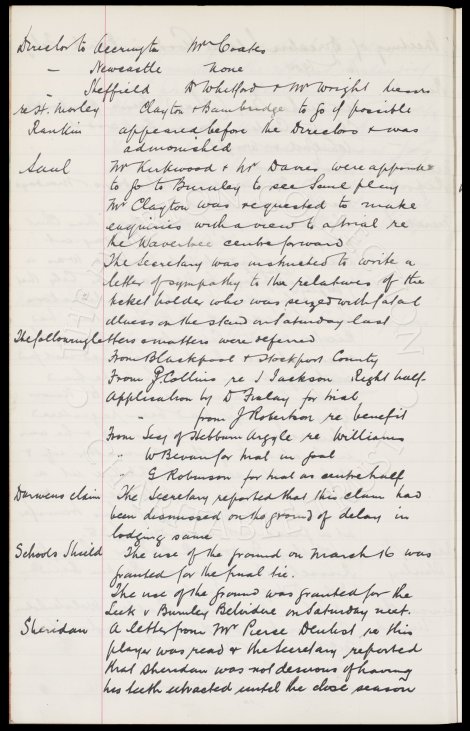 Director to Accrington Mr Coates
– Newcastle None
– Sheffield Dr Whitford & Mr Wright Messrs
re H. Morley Clayton & Bainbridge to go if possible
Rankin appeared before the Directors & was
admonished
Saul Mr Kirkwood & Mr Davies were appointed
to go to Burnley to see Saul play
Mr Clayton was requested to make
enquiries with a view to a trial re
the Waverbee centre forward
The Secretary was instructed to write a
letter of sympathy to the relatives of the
ticket holder who was seized with fatal
illness on the stand on Saturday last
The following letters & matters were deferred
From Blackpool & Stockport County
From J Collins re J Jackson Right half.
Application by D Finlay for trial
" from J Robertson re benefit
From Secy of Hebburn Argyle re Williams
" W Bevan for trial in goal
" G Robinson for trial as centre half
Darwens claim The Secretary reported that this claim had
been dismissed on the ground of delay in
lodging same
Schools Shield The use of the ground on March 16 was
granted for the final tie.
The use of the ground was granted for the
Leek v Burnley Belvidere on Saturday next.
Sheridan A letter from Mr Pierse Dentist re this
player was read & the Secretary reported
that Sheridan was not desirous of having
his teeth extracted until the close season